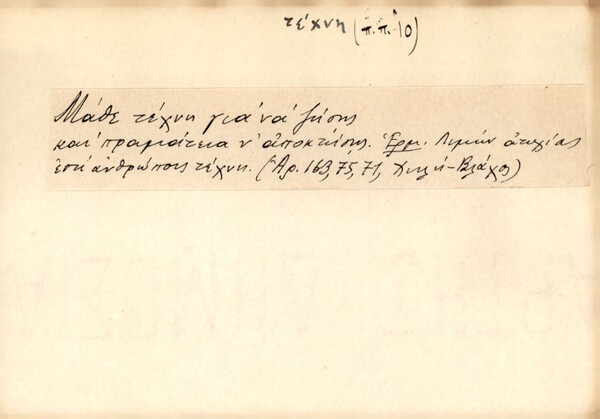 τέχνη (π.π. 10)
Μάθε τέχνη γιά νά ζήσης
καί πραμάτεια ν' ἀποκτήσης. Ἑρμ. Λιμήν ἀτυχίας
ἐστί ἀνθρώποις τέχνη. (Ἀρ. 163, 75, 71, Βλάχος)